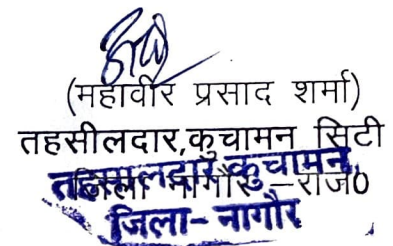 (महावीर प्रसाद शर्मा)
तहसीलदार,कुचामन सिटी
जिला नागौर –राज0
तहसीलदार, कुचामन,
जिला- नागौर